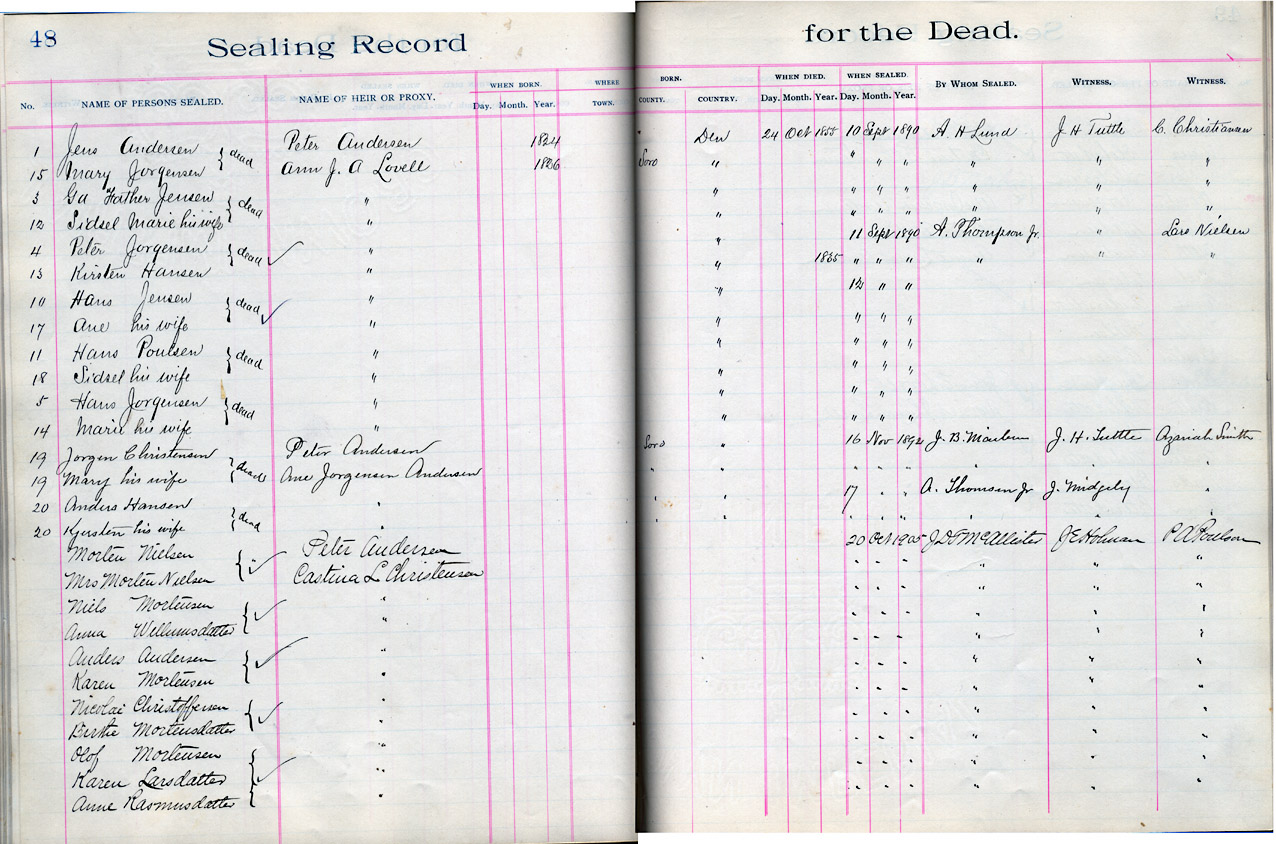 48 Sealing Record for the Dead.
No. NAME OF PERSONS SEALED. NAME OF HEIR OR PROXY. WHEN BORN. WHERE BORN. WHEN DIED. WHEN SEALED. BY WHOM SEALED. WITNESS. WITNESS.
Day. Month. Year. TOWN. COUNTY. COUNTRY. Day. Month. Year. Day. Month. Year.
1 Jens Andersen } dead Peter Andersen 1824 " Den 24 Oct 1855 10 Sept 1890 A. H Lund J H Tuttle C. Christiansen
15 Mary Jorgensen Ann J. A Lovell 1826 Soro " " " " " " "
3 Gd Father Jensen } dead " " " " " " " "
12 Sidsel Marie his wife " " " " " " "
4 Peter Jorgensen } dead " " 11 Sept 1890 A. Thompson Jr. " Lars Nielsen
13 Kirsten Hansen " " 1835 " " " " " "
10 Hans Jensen } dead " " 12 " "
17 Ane his wife " " " " "
11 Hans Poulsen } dead " " " " "
18 Sidsel his wife " " " " "
5 Hans Jorgensen } dead " " " " "
14 Marie his wife " " " " "
19 Jorgen Christensen } dead Peter Andersen Soro " 16 Nov J. H. Tuttle Azariah Smith
19 Mary his wife Ane Jorgensen Andersen " " " " " " " "
20 Anders Hansen } dead " " " 17 " " A. Thomson Jr J. Midgely "
20 Kjersten his wife " " " " " " " " "
Morten Nielsen } Peter Andersen 20 Oct 1905 J D T McAllister J E Holman P A Poulson
Mrs Morten Nielsen Castina L Christensen " " " " " "
Niels Mortensen } " " " " " " "
Anna Wellumsdatter " " " " " " "
Anders Andersen } " " " " " " "
Karen Mortensen " " " " " " "
Nicolai Christoffersen } " " " " " " "
Birthe Mortensdatter " " " " " " "
Olof Mortensen } " " " " " " "
Karen Larsdatter " " " " " " "
Anne Rasmusdatter " " " " " " "